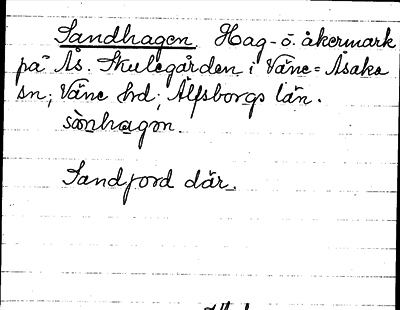 Sandhagen Hag- o. åkermark
på Ås. Skulegården i Väne-Åsaka
sn; Väne hd; Älfsborgs län.
sànhagen.
Sandjord där.